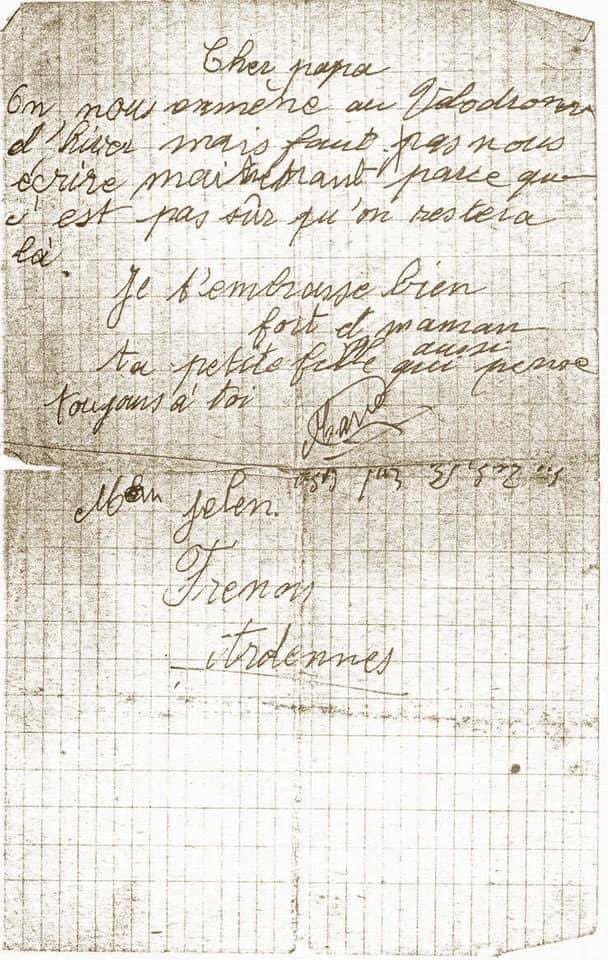 Cher papa
On nous emmène au Vélodrome
d'hiver mais faut pas nous
écrire maintenant parce que
c'est pas sûr qu'on restera
là.
Je t'embrasse bien
fort et maman
aussi
ta petite fille qui pense
toujours à toi
Marie
Jelen
Frenois
Ardennes